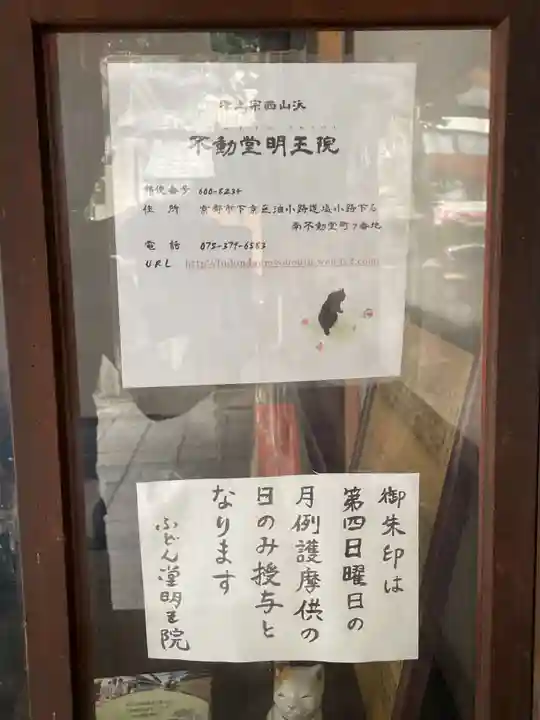 浄土宗西山派
不動堂明王院
郵便番号 600-8234
住所 京都市下京区油小路通塩小路下る
南不動堂町7番地
電話 075-371-6583
URL
御朱印は
第四日曜日の
月例護摩供の
日のみ授与と
なります
ふどん堂明王院